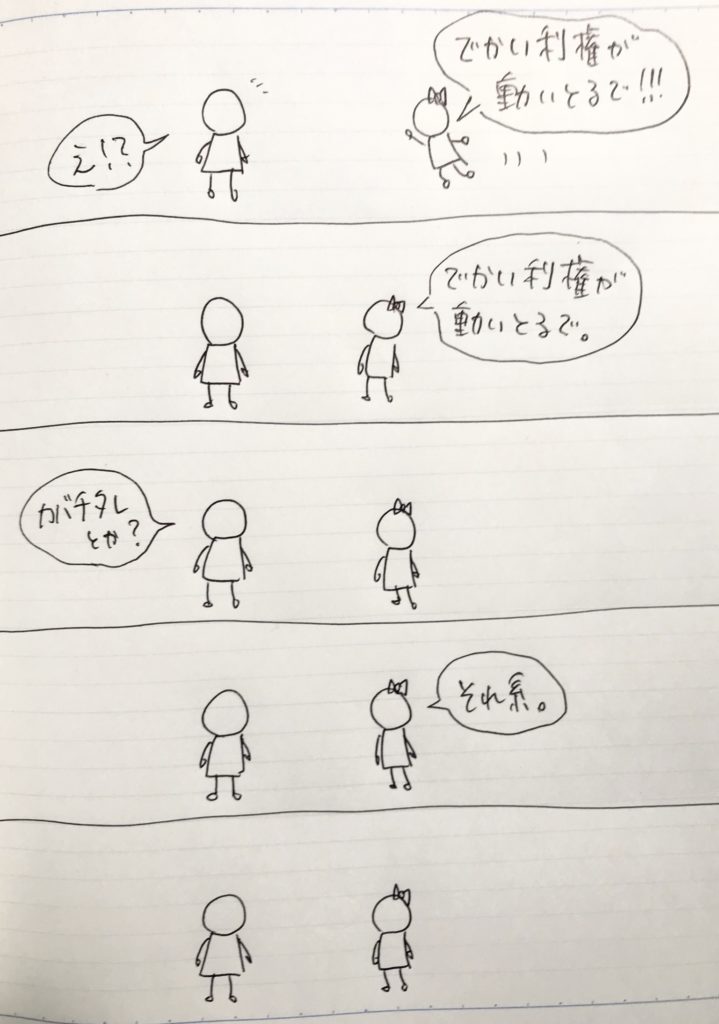 でかい利権が
動いとるで!!!
え!?
でかい利権が
動いとるで。
カバチタレ
とか?
それ系。